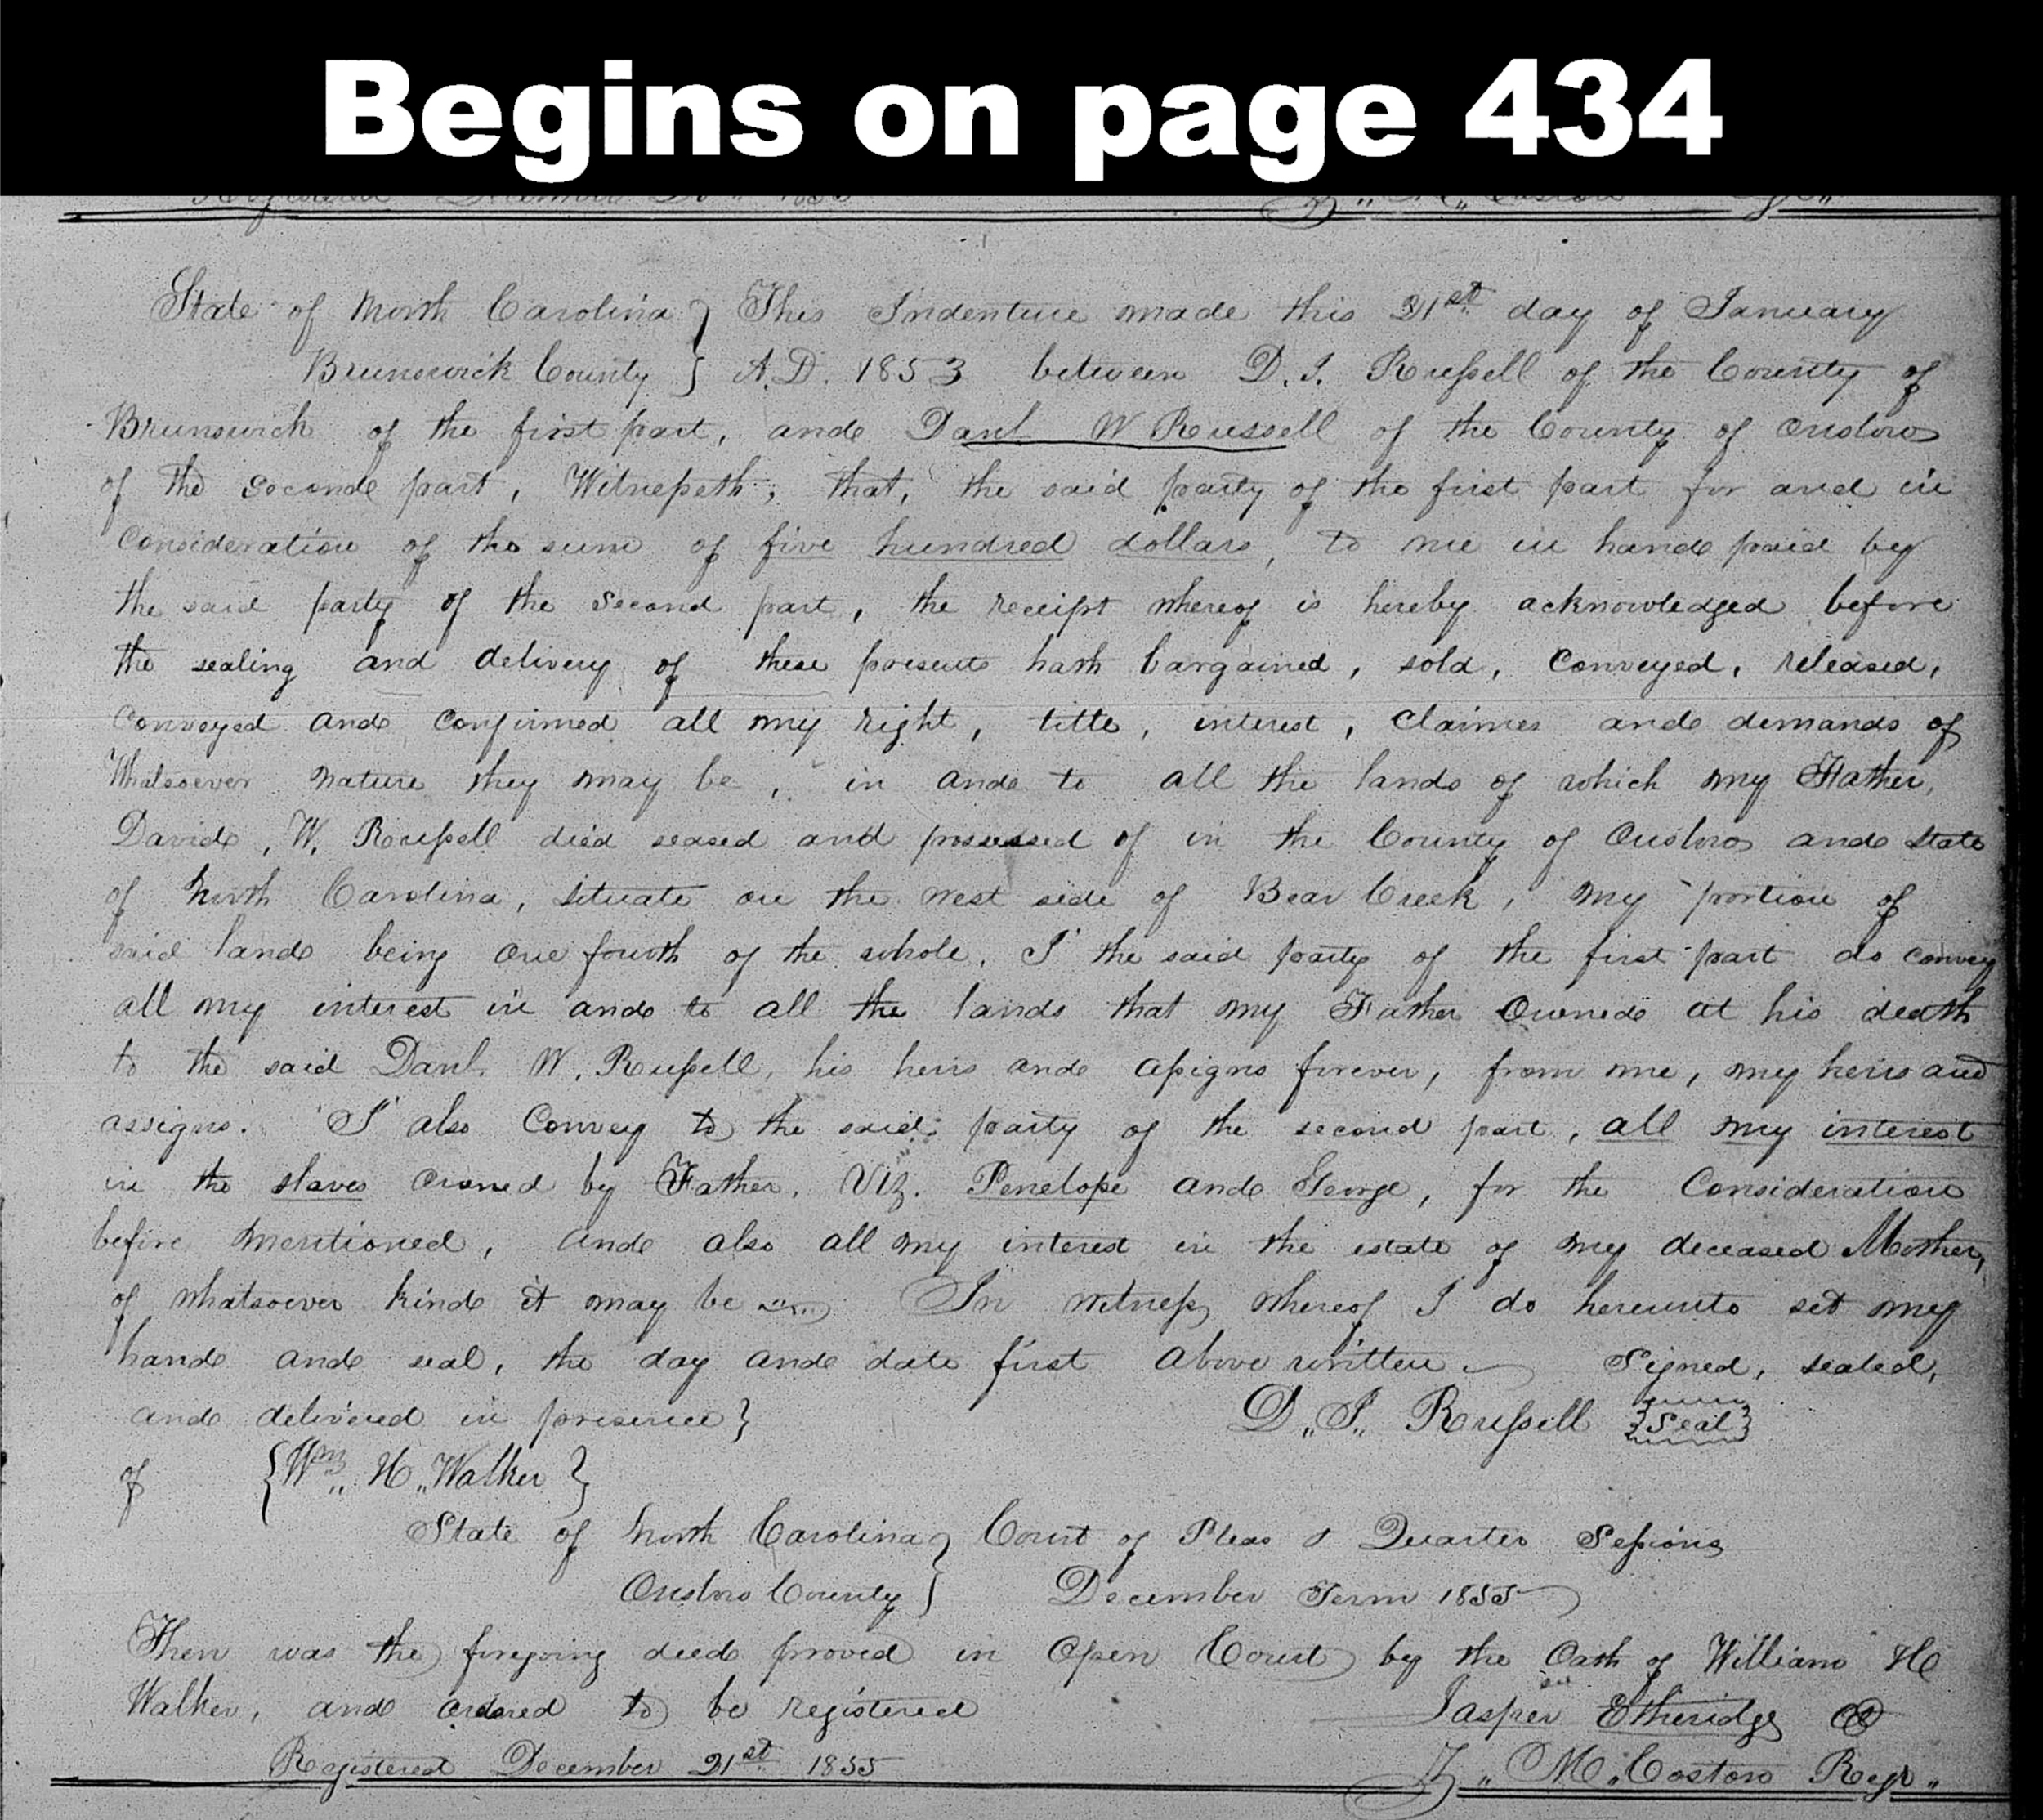 Begins on page 434
Registered December
State of North Carolina } This Indenture made this 21st day of January
Brunswick County } A.D. 1853 between D. J. Russell of the County of
Brunswick of the first part, and Danl W Russell of the County of Onslow
of the second part, Witnesseth, that, the said party of the first part for and in
Consideration of the sum of five hundred dollars, to me in hand paid by
the said party of the second part, the receipt whereof is hereby acknowledged before
the sealing and delivery of these presents hath bargained, sold, Conveyed, released,
Conveyed and Confirmed all my right, title, interest, Claimes and demands of
Whatsoever nature they may be, in and to all the lands of which my Father,
David, W. Russell died seased and possessed of in the County of Onslow and State
of North Carolina, situate on the west side of Bear Creek, my portion of
said land being one fourth of the whole. I the said party of the first part do convey
all my interest in and to all the lands that my Father Owned at his death
to the said Danl. W. Russell, his heirs and assigns forever, from me, my heirs and
assigns. I also Convey to the said party of the second part, all my interest
in the slaves owned by Father, Viz. Penelope and George, for the Consideration
before mentioned, and also all my interest in the estate of my deceased Mother,
of whatsoever kind it may be In witness whereof I do hereunto set my
hand and seal, the day and date first above written Signed, sealed,
and delivered in presence } D,, J,, Russell {Seal}
of {Wm,, H,, Walker }
State of North Carolina } Court of Pleas & Quarter Sessions
Onslow County } December Term 1855
Then was the foregoing deed proved in Open Court by the Oath of William H
Walker, and ordered to be registered Jasper Etheridge
Registered December 21st 1855 M,, Coston Regr,,